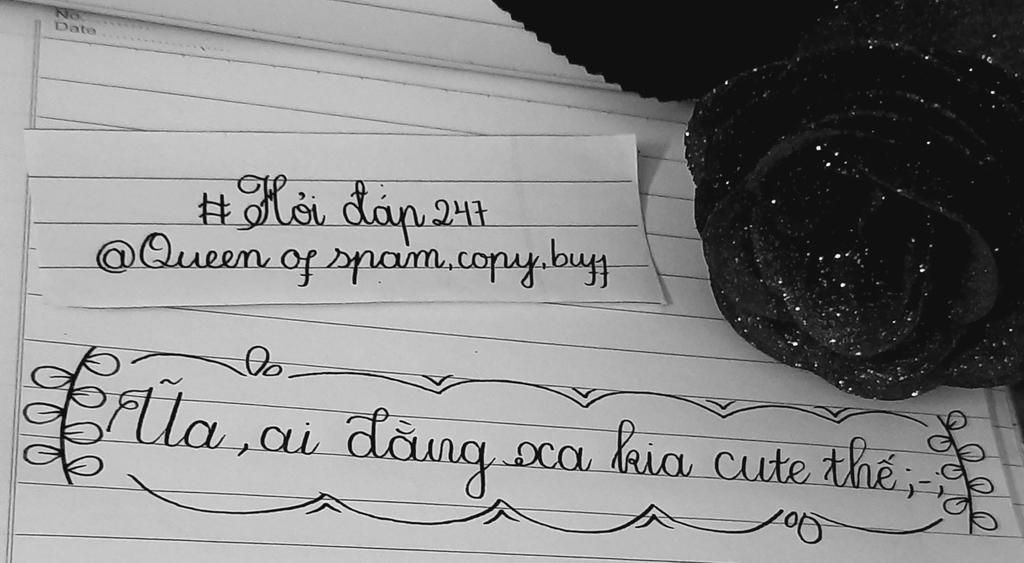 No.
Date
#Hỏi đáp 247
@Queen of spam,copy,buff
Ũa, ai đằng xa kia cute thế;-;